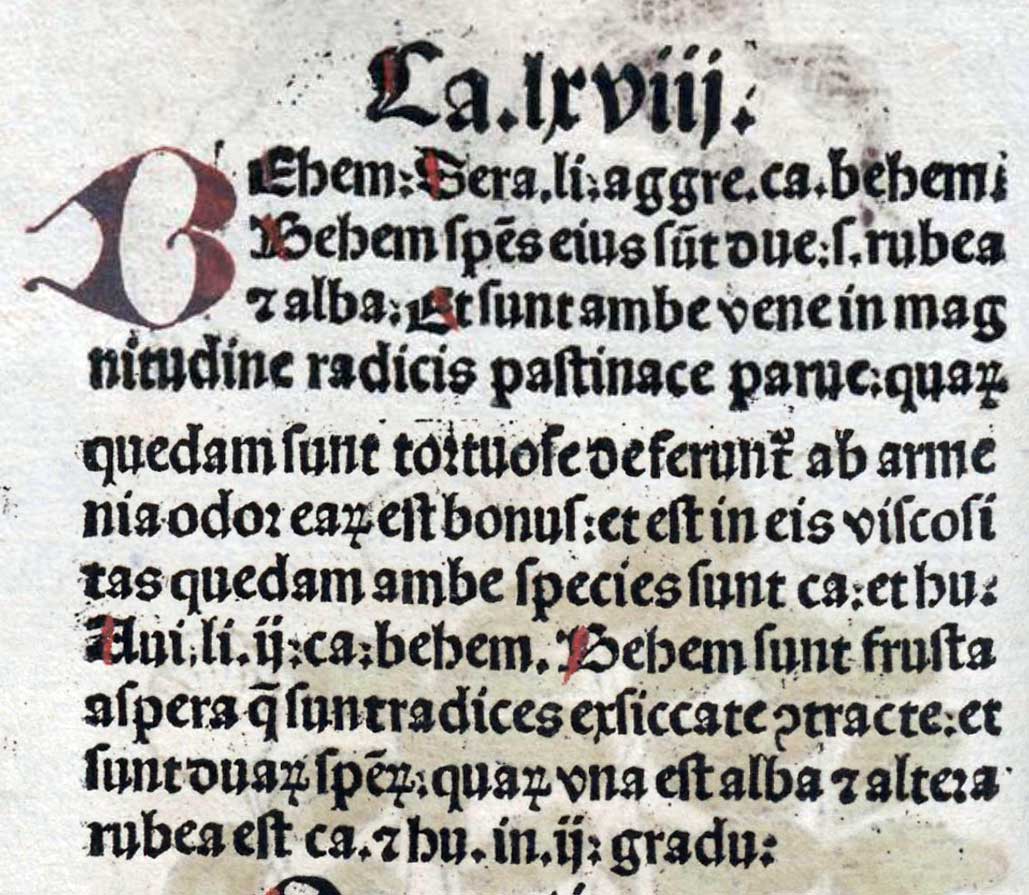 Ca.lxviij.
BEhem: Sera.li:aggre.ca.behem:
Behem spēs eius sūt due:s.rubea
⁊ alba: Et sunt ambe vene in mag
nitudine radicis pastinace parue:quaꝝ
quedam sunt tortuose deferunt᷑ ab arme
nia odor eaꝝ est bonus:et est in eis viscosi
tas quedam ambe species sunt ca:et hu:
Aui.li.ij:ca:behem. Behem sunt frusta
aspera q̄ sunt radices exsiccate ꝯtracte:et
sunt duaꝝ spēꝝ:quaꝝ vna est alba ⁊ altera
rubea est ca.⁊ hu.in.ij: gradu: